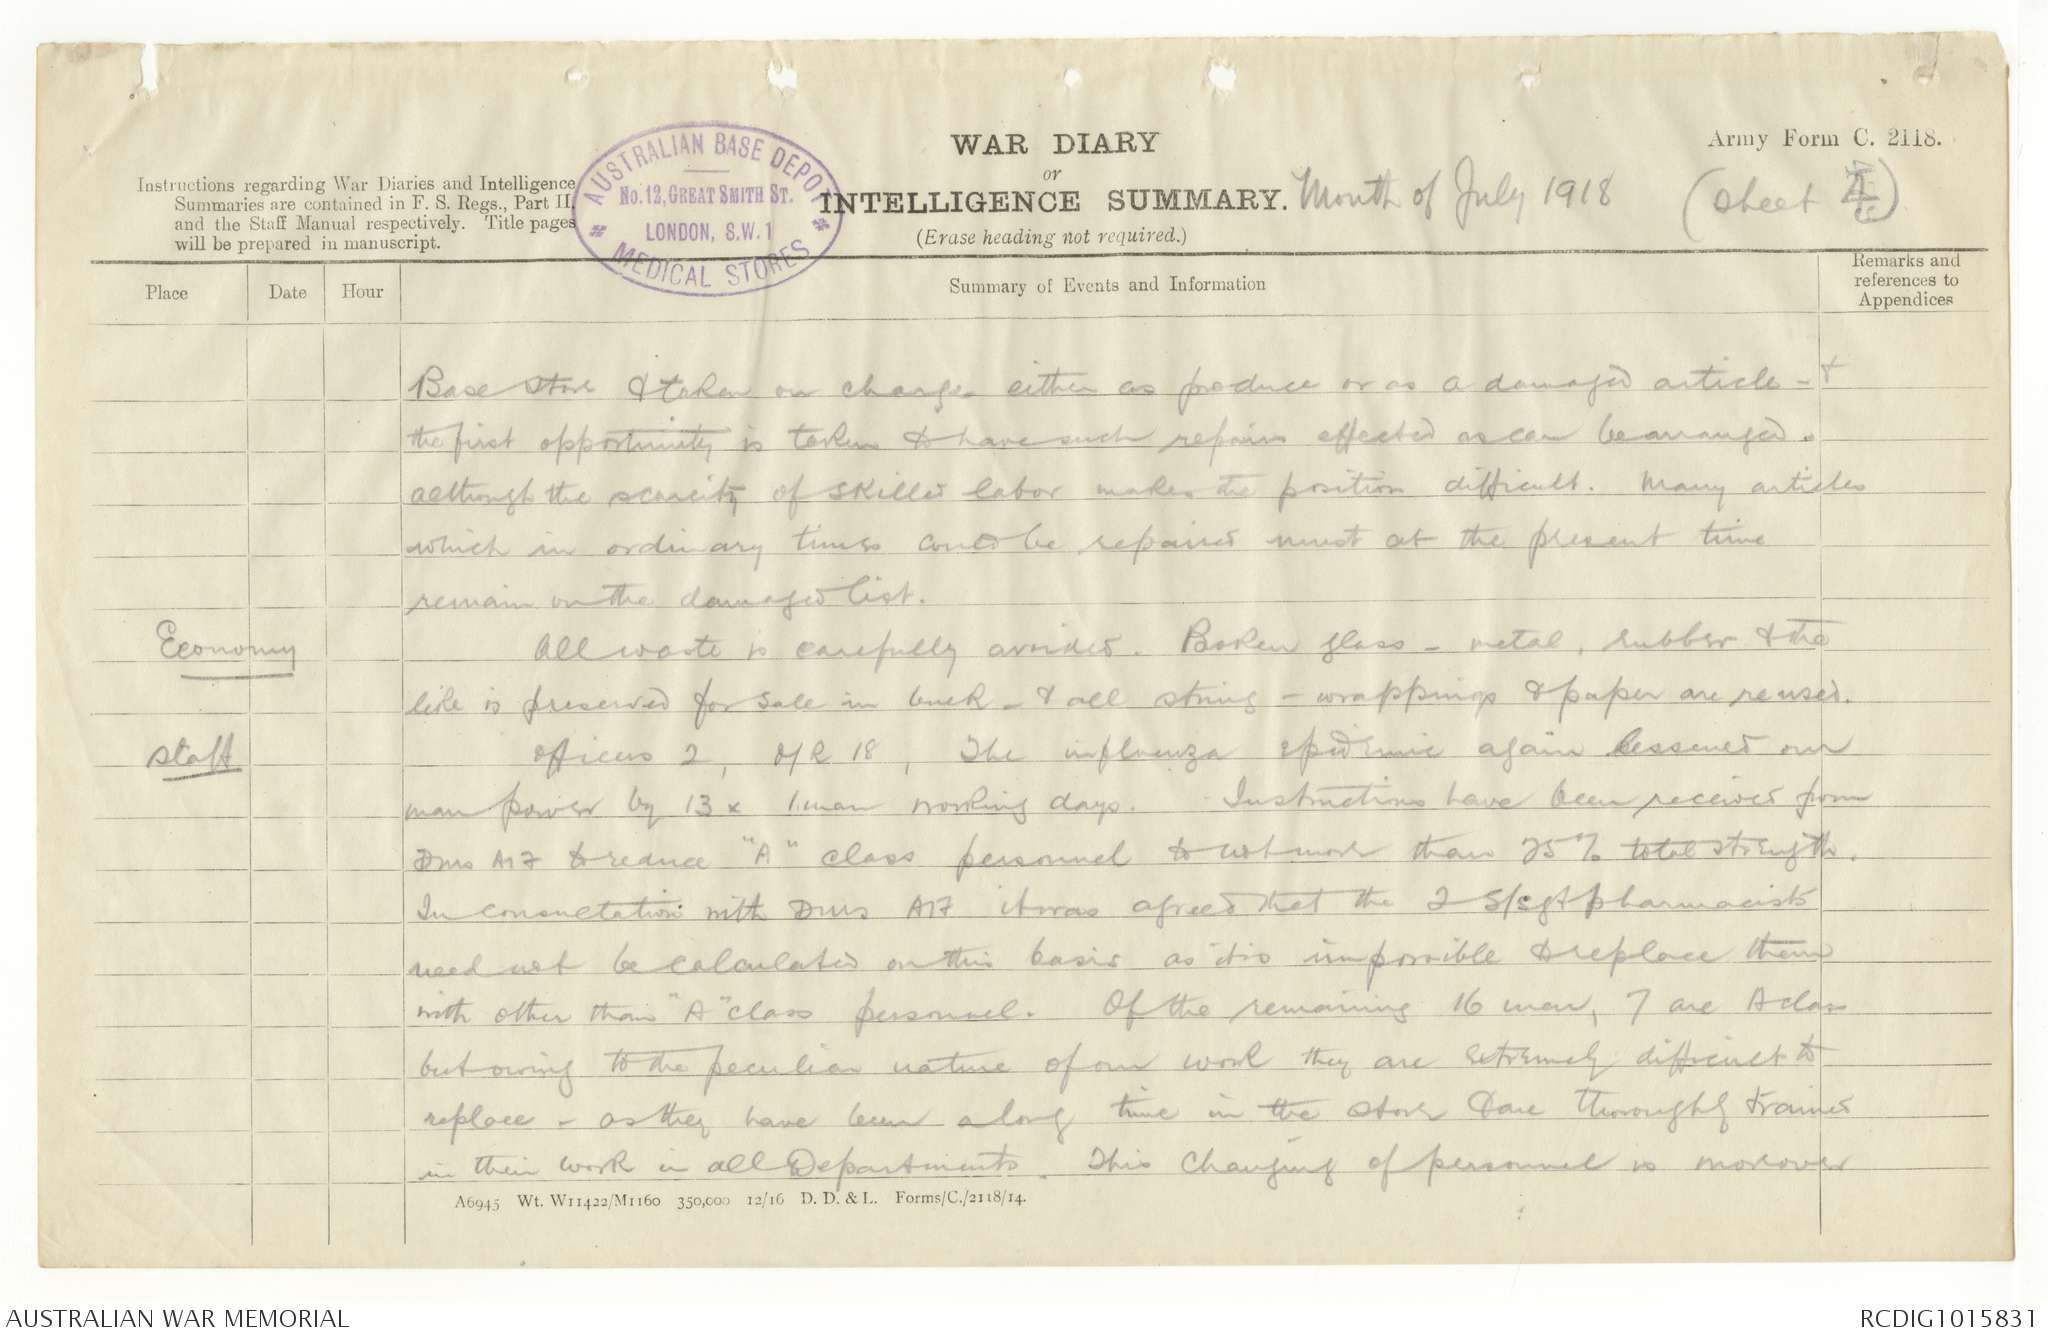 WAR DIARY
or
INTELLIGENCE SUMMARY.
(Erase heading not required.)
Month of July 1918
(Sheet 4)
Army Form C. 2118.
Instructions regarding War Diaries and Intelligence
Summaries are contained in F. S. Regs., Part II.
and the Staff Manual respectively. Title pages
will be prepared in manuscript.
AUSTRALIAN BASE DEPOT
No. 12, GREAT SMITH ST.
LONDON, S.W.1
MEDICAL STORES
Place
Date
Hour
Summary of Events and Information
Remarks and
references to
Appendices
Base Store & taken on charge either as produce or as a damaged article - &
the first opportunity is taken to have such repairs effected as can be arranged.
although the scarcity of skilled labor makes the position difficult. Many articles
which in ordinary times could be repaired must at the present time
remain on the damaged list.
Economy
All waste is carefully avoided. Broken glass - metal, rubber & the
like is preserved for sale in bulk - & all string - wrappings & paper are reused.
Staff
Officers 2, O/R 18, The influenza epidemic again lessened our
man power by 13 x 1 man working days. Instructions have been received from
DMS AIF to reduce "A" class personnel to not more than 25% total strength.
In consultation with DMS AIF it was agreed that the 2 S/Sgt pharmacists
need not be calculated on this basis as it is impossible to replace them
with other than "A" class personnel. Of the remaining 16 men, 7 are A class
but owing to the peculiar nature of our work they are extremely difficult to
replace - as they have been a long time in the store & are thoroughly trained
in their work in all Departments. This changing of personnel is moreover
A6945 Wt. W11422/M1160 350,000 12/16 D. D. & L. Forms/C./2118/14.
AUSTRALIAN WAR MEMORIAL
RCDIG1015831